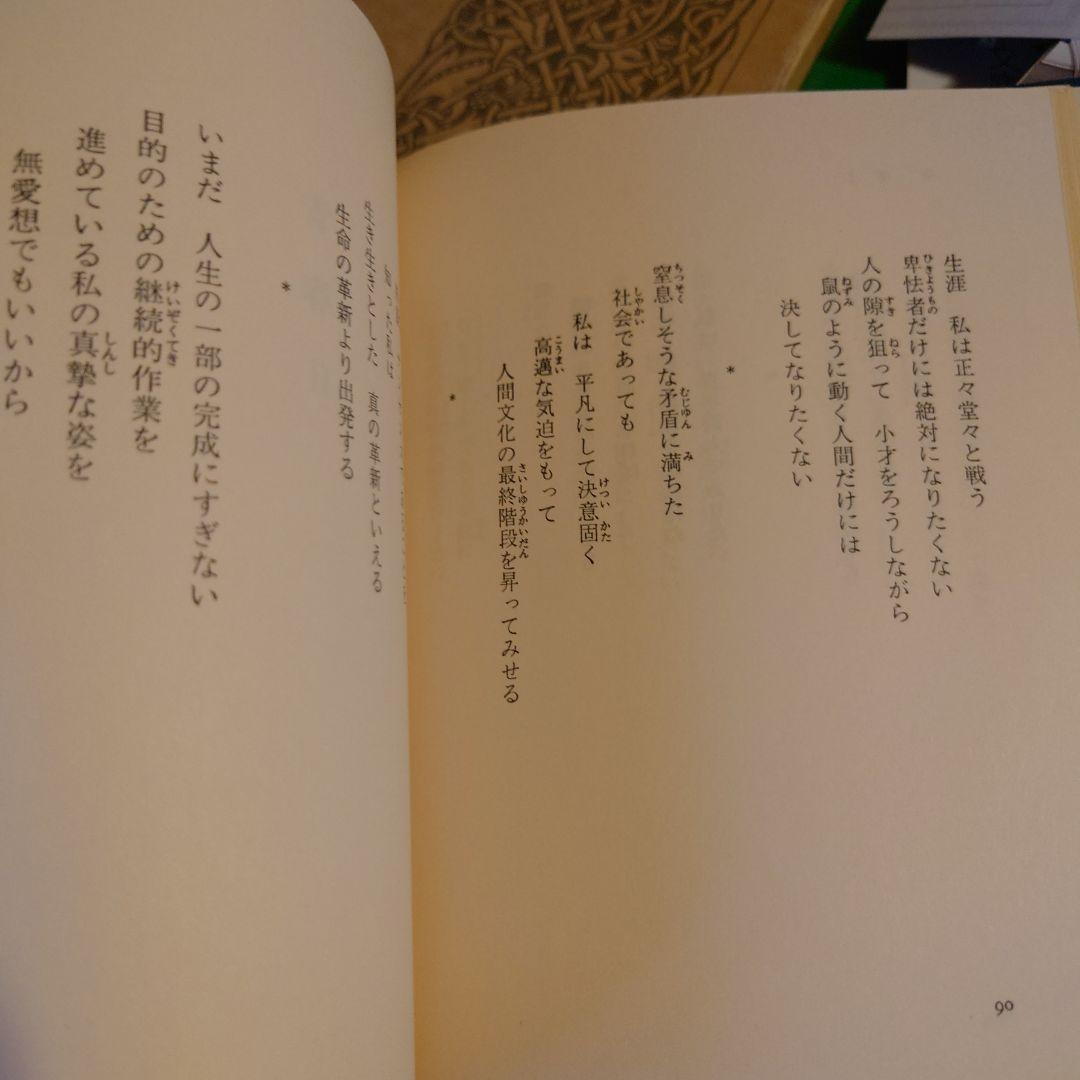 生涯　私は正々堂々と戦う
卑怯者だけには絶対になりたくない
人の隙を狙って　小才をろうしながら
鼠のように動く人間だけには
決してなりたくない
*
窒息しそうな矛盾に満ちた
社会であっても
私は　平凡にして決意固く
高邁な気迫をもって
人間文化の最終階段を昇ってみせる
*
生き生きとした　真の革新といえる
生命の革新より出発する
*
いまだ　人生の一部の完成にすぎない
目的のための継続的作業を
進めている私の真摯な姿を
無愛想でもいいから
90